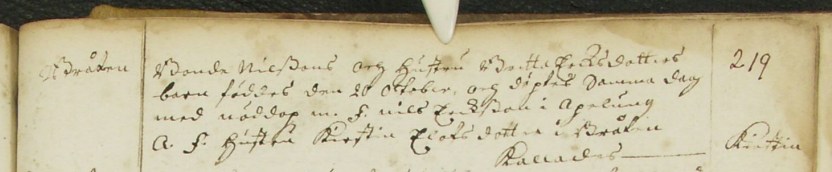 Bråten Bonde Nilssons och hustru Britta Ersdotters 219
barn föddes den 20 October, och döptes Samma dag
med nöddop m. F. nils Ericksson i Apelung
A. F. hustru Kirstin Elofsdotter i Bråten
Kallades Kirstin